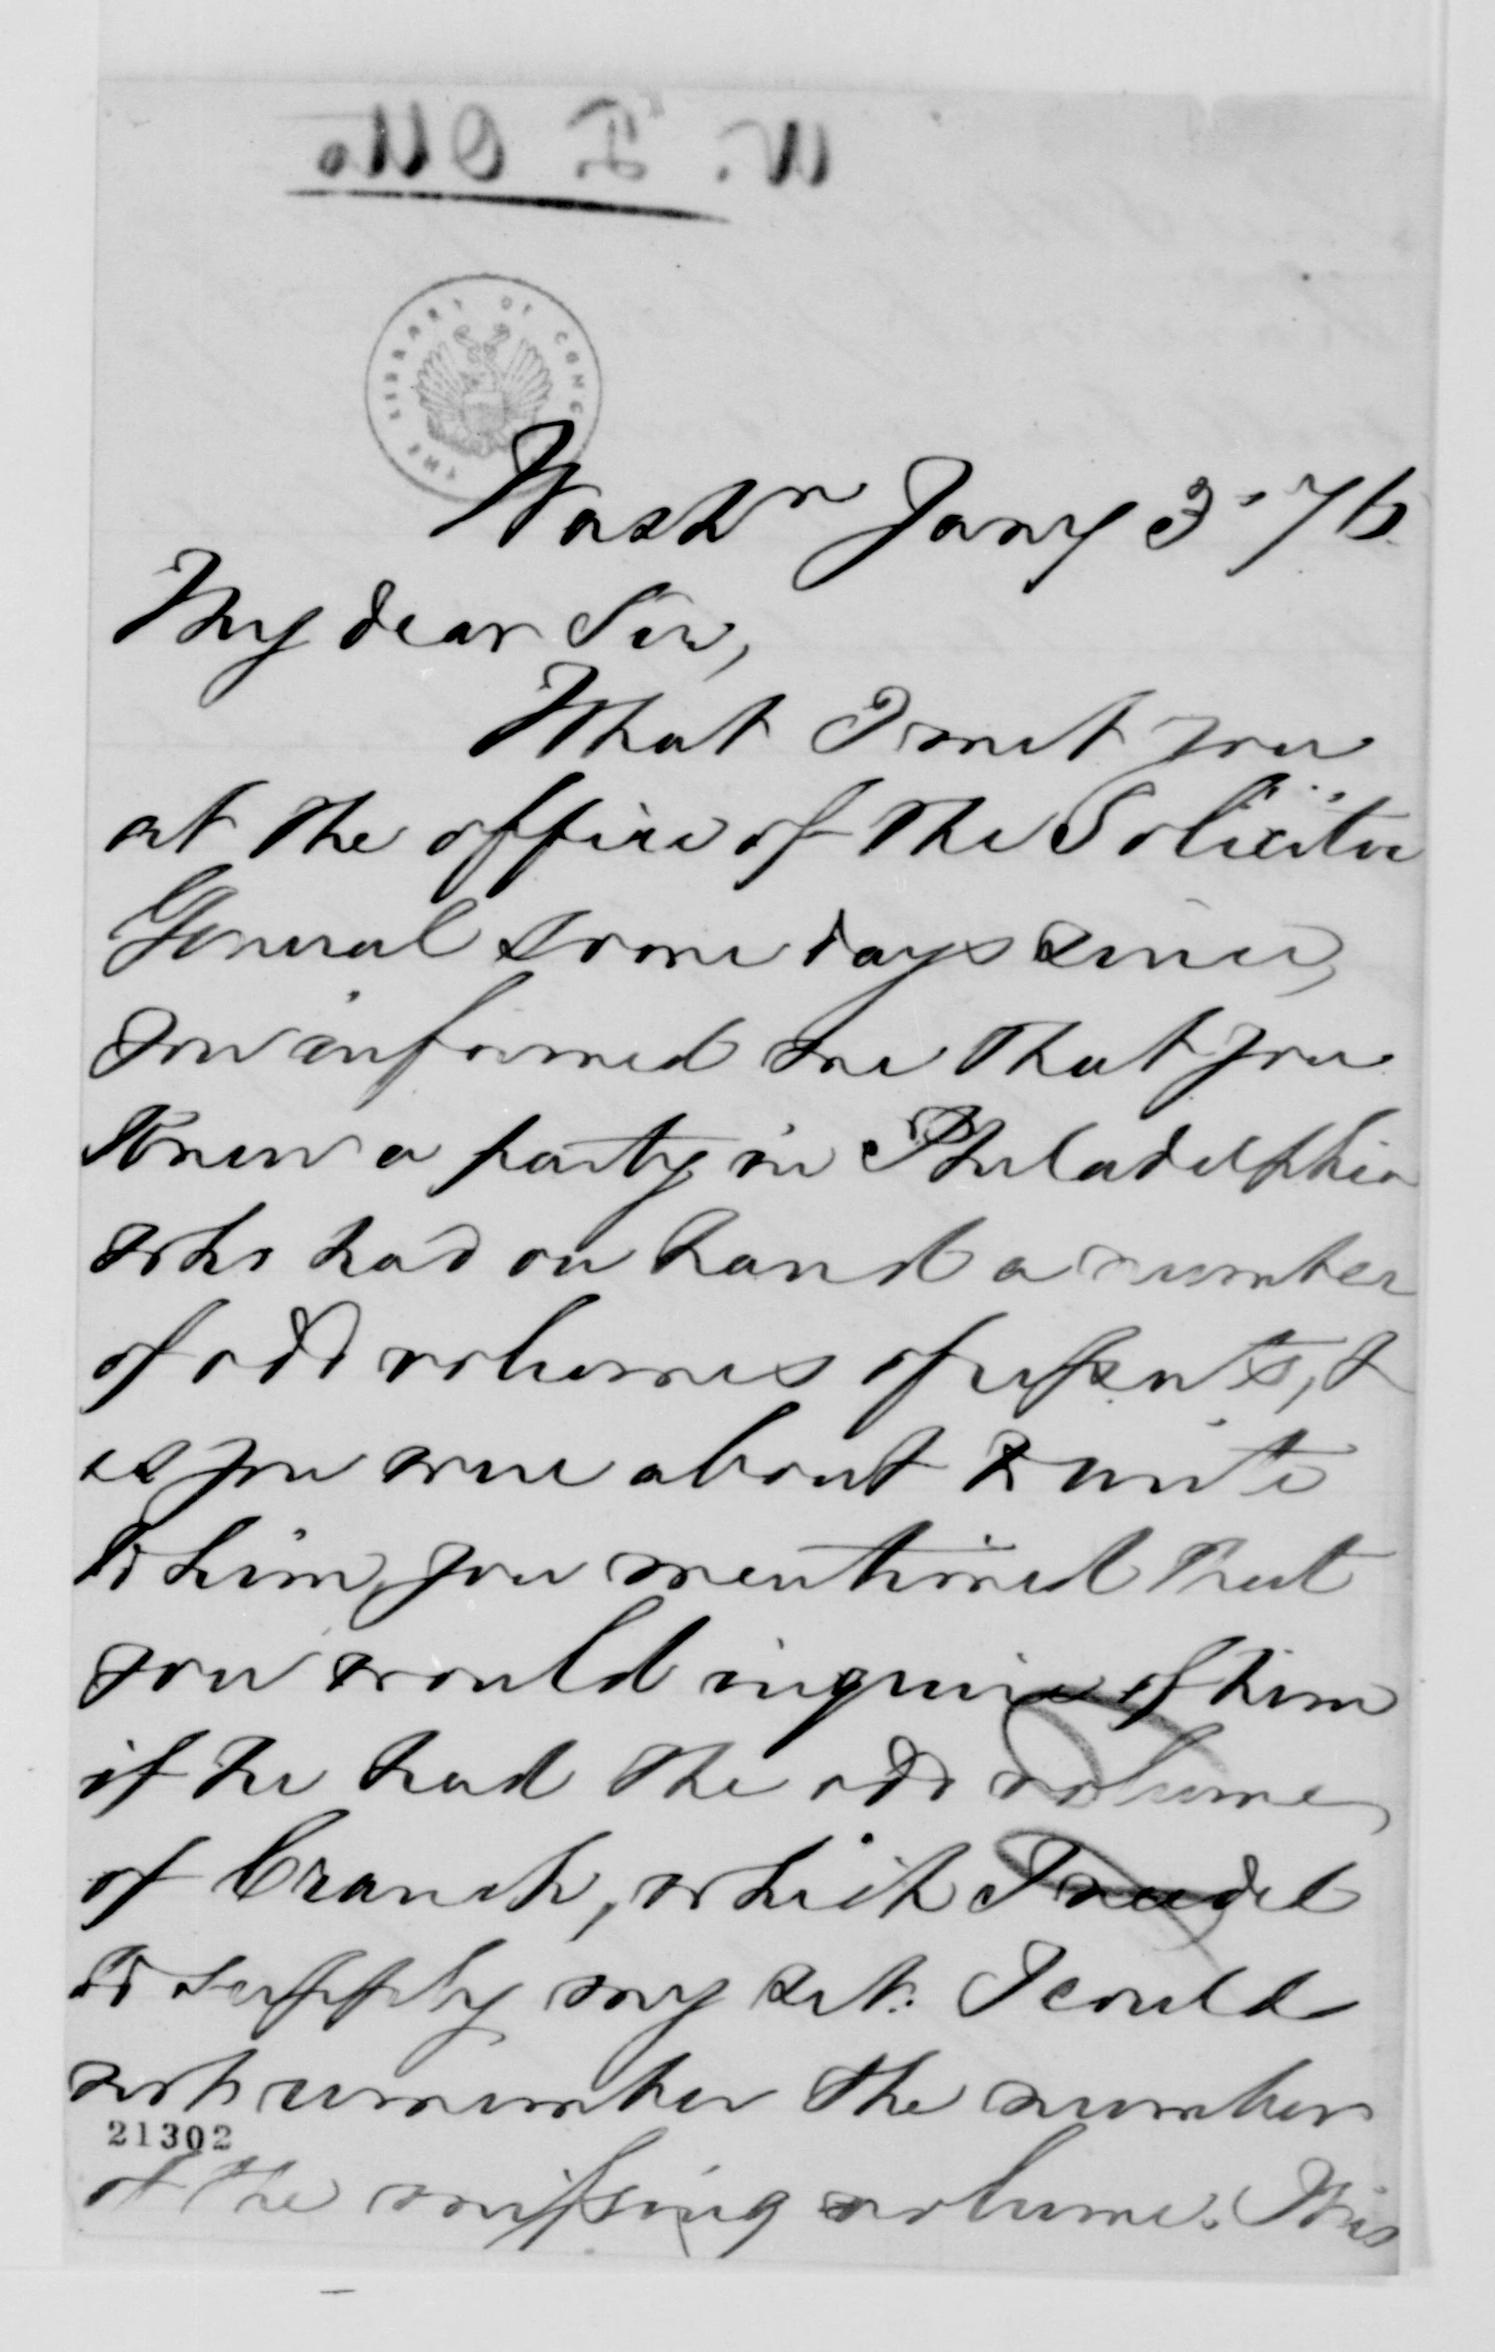 W. T. Otto
THE LIBRARY OF CONG
Washn Jany 3 '76
My dear Sir,
What I met you
at the office of the Solicitor
General some days since,
you informed me that you
knew a party in Philadelphia
who had on hand a number
of odd volumes of reports, &
as you were about to write
to him, you mentioned that
you would inquire of him
if he had the odd volume
of Cranch, which I needed
to supply my set. I could
not remember the number
21302
of the missing volume. It is